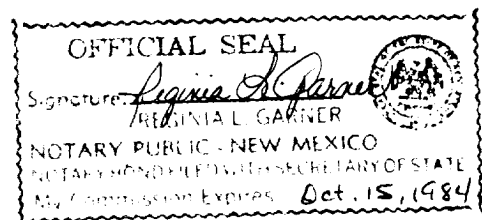 OFFICIAL SEAL
Signature: Reginia L. Garner
REGINIA L. GARNER
NOTARY PUBLIC - NEW MEXICO
NOTARY BOND FILED WITH SECRETARY OF STATE
My Commission Expires Oct. 15, 1984